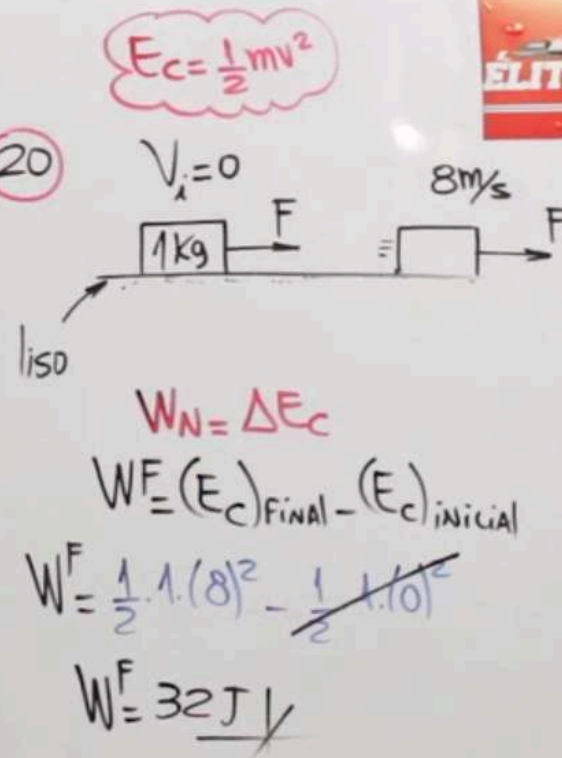 E_C = 1/2 mv²
ÉLIT
20
V_i = 0
8m/s
1Kg
F
F
liso
W_N = ΔE_C
W^F = (E_C)_FINAL - (E_C)_INICIAL
W^F = 1/2 . 1 . (8)² - 1/2 1.(0)²
W^F = 32 J